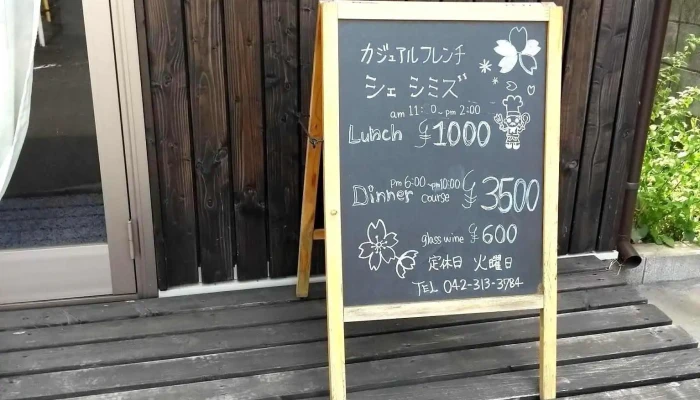 カジュアルフレンチ
シェ シミズ
am 11:00~pm 2:00
Lunch ¥1000
pm 6:00~pm10:00
Dinner course ¥3500
glass wine ¥600
定休日 火曜日
TEL 042-313-3784